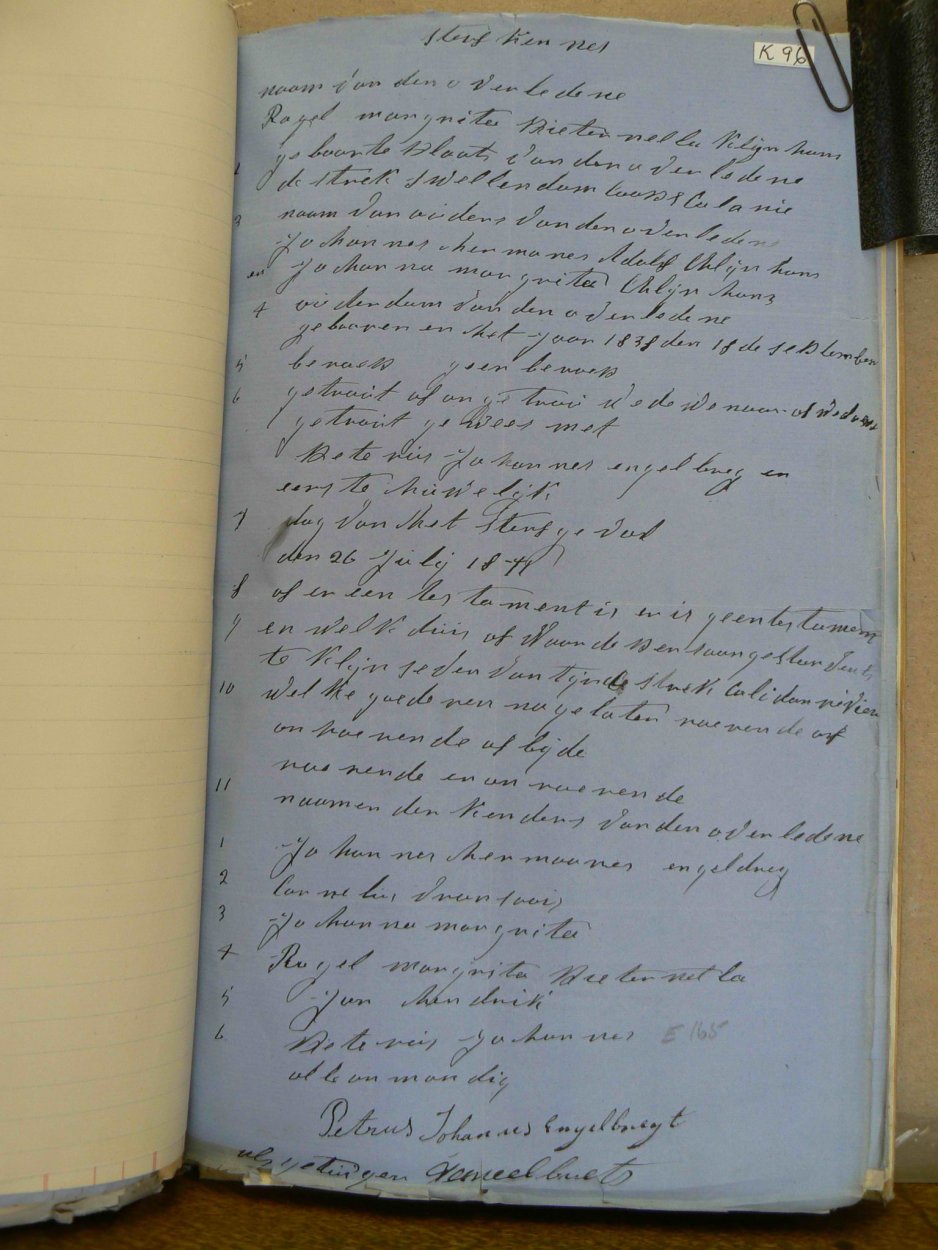 sterf Ken nes
K 96
naam van den over ledene
Ragel margrita Pieter nella Klyn hans
1 ge boorte Plaats van den over ledene
de strek swellendam Caapse Cala nie
3 naam van ouders van den over ledene
Jo han nes her ma nes Adolf Klyn hans
en Jo han na margrita Klyn hans
4 ouder dam van den over ledene
ge booren en het Jaar 1838 den 18 de september
5 beroep geen beroep
6 getrout of on ge trou wedewenaar of
getrout ge wees met
Pete rus Jo han nes engel breg en
eers te huwelijk
7 dag van het sterf ge val
den 26 July 18
8 of er een tes ta ment is er is geen testament
9 en welk duis of waar de Persoon gestorven is
te Klyn de strek Calidan rivier
10 wel ke goederen na gelaten roerende of
on roerende of byde
roe rende en on roe rende
11 naamen der Kenders van den over ledene
1 Jo han nes her maa nes engelbreg
2 Cor ne lus fran soois
3 Jo han na mar grita
4 Ragel margrita Pieter nel la
5 Jan hen drik
6 Pete rus Jo han nes E 165
al le on mon dig
Petrus Johannes Engelbregt
als getuigen